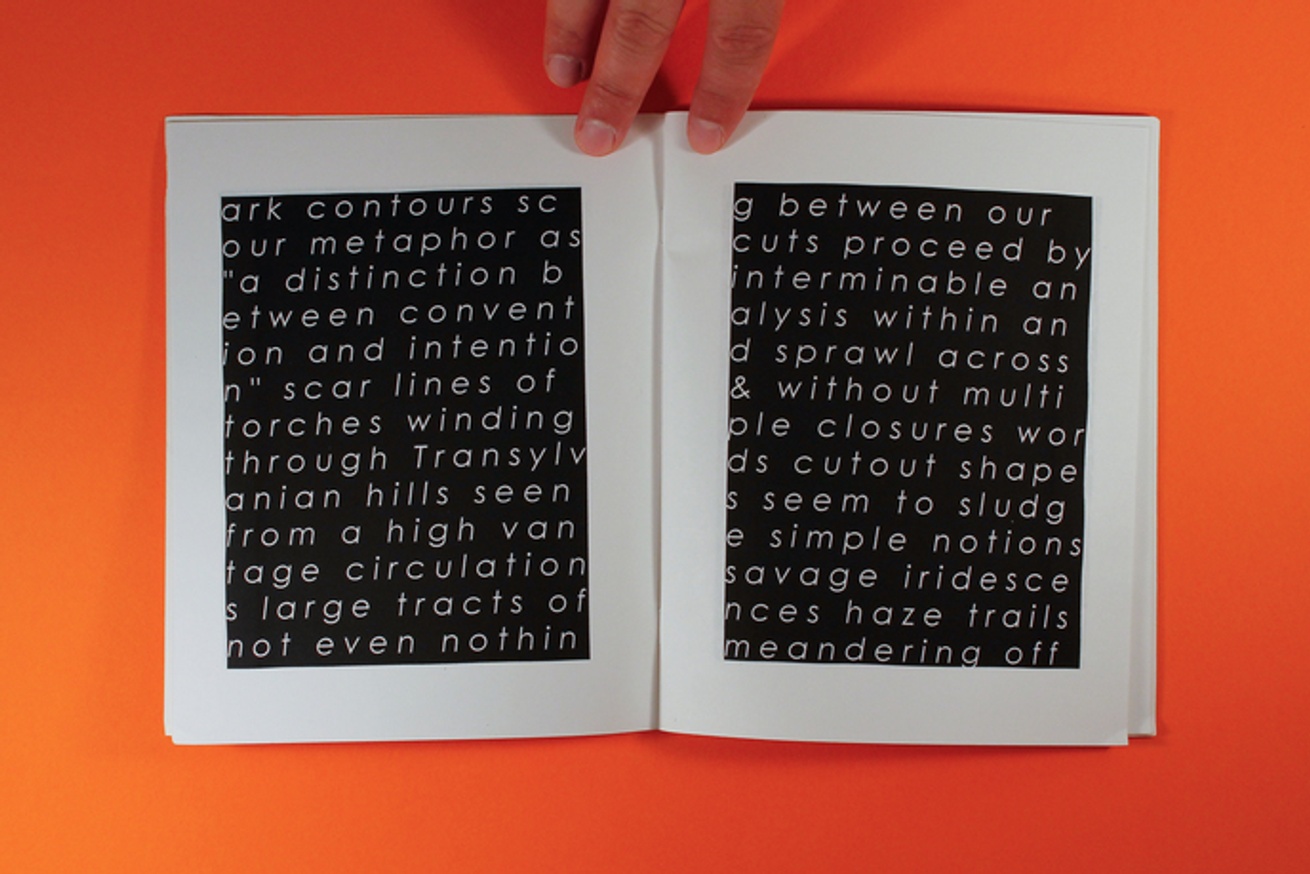 ark contours sc
our metaphor as
"a distinction b
etween convent
ion and intentio
n" scar lines of
torches winding
through Transylv
anian hills seen
from a high van
tage circulation
s large tracts of
not even nothin
g between our
cuts proceed by
interminable an
alysis within an
d sprawl across
& without multi
ple closures wor
ds cutout shape
s seem to sludg
e simple notions
savage iridesce
nces haze trails
meandering off